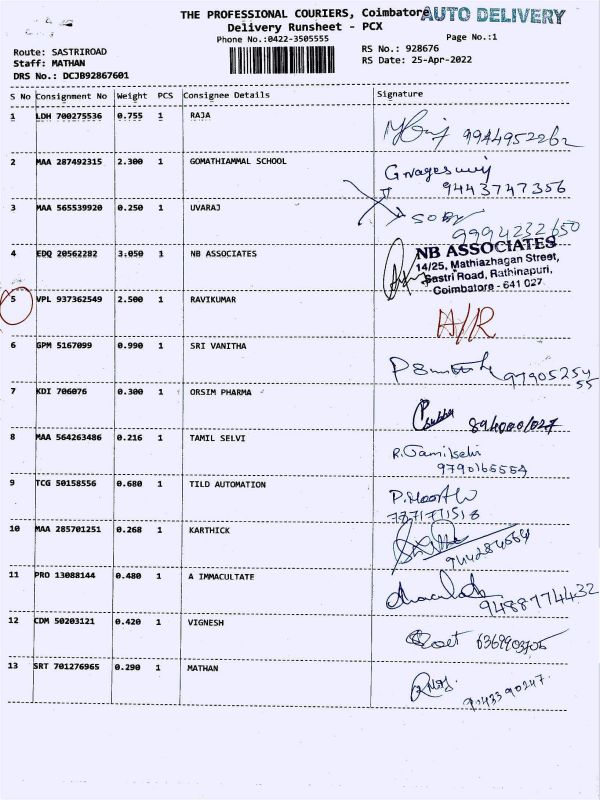 THE PROFESSIONAL COURIERS, Coimbatore
AUTO DELIVERY
Delivery Runsheet - PCX
Phone No.:0422-3505555
Page No.:1
Route: SASTRIROAD
RS No.: 928676
Staff: MATHAN
RS Date: 25-Apr-2022
DRS No.: DCJB92867601
S No Consignment No Weight PCS Consignee Details Signature
1 LDH 700275536 0.755 1 RAJA 9944952262
2 MAA 287492315 2.300 1 GOMATHIAMMAL SCHOOL
9443747356
3 MAA 565539920 0.250 1 UVARAJ
9994232650
4 EDQ 20562282 3.050 1 NB ASSOCIATES
NB ASSOCIATES
14/25, Mathiazhagan Street,
Sastri Road, Rathinapuri,
Coimbatore - 641 027.
5 VPL 937362549 2.500 1 RAVIKUMAR A/R
6 GPM 5167099 0.990 1 SRI VANITHA
7 KDI 706076 0.300 1 ORSIM PHARMA
8 MAA 564263486 0.216 1 TAMIL SELVI R.Tamilselvi
9790165554
9 TCG 50158556 0.680 1 TILD AUTOMATION
10 MAA 285701251 0.268 1 KARTHICK
11 PRO 13088144 0.480 1 A IMMACULTATE
9488774432
12 CDM 50203121 0.420 1 VIGNESH
13 SRT 701276965 0.290 1 MATHAN